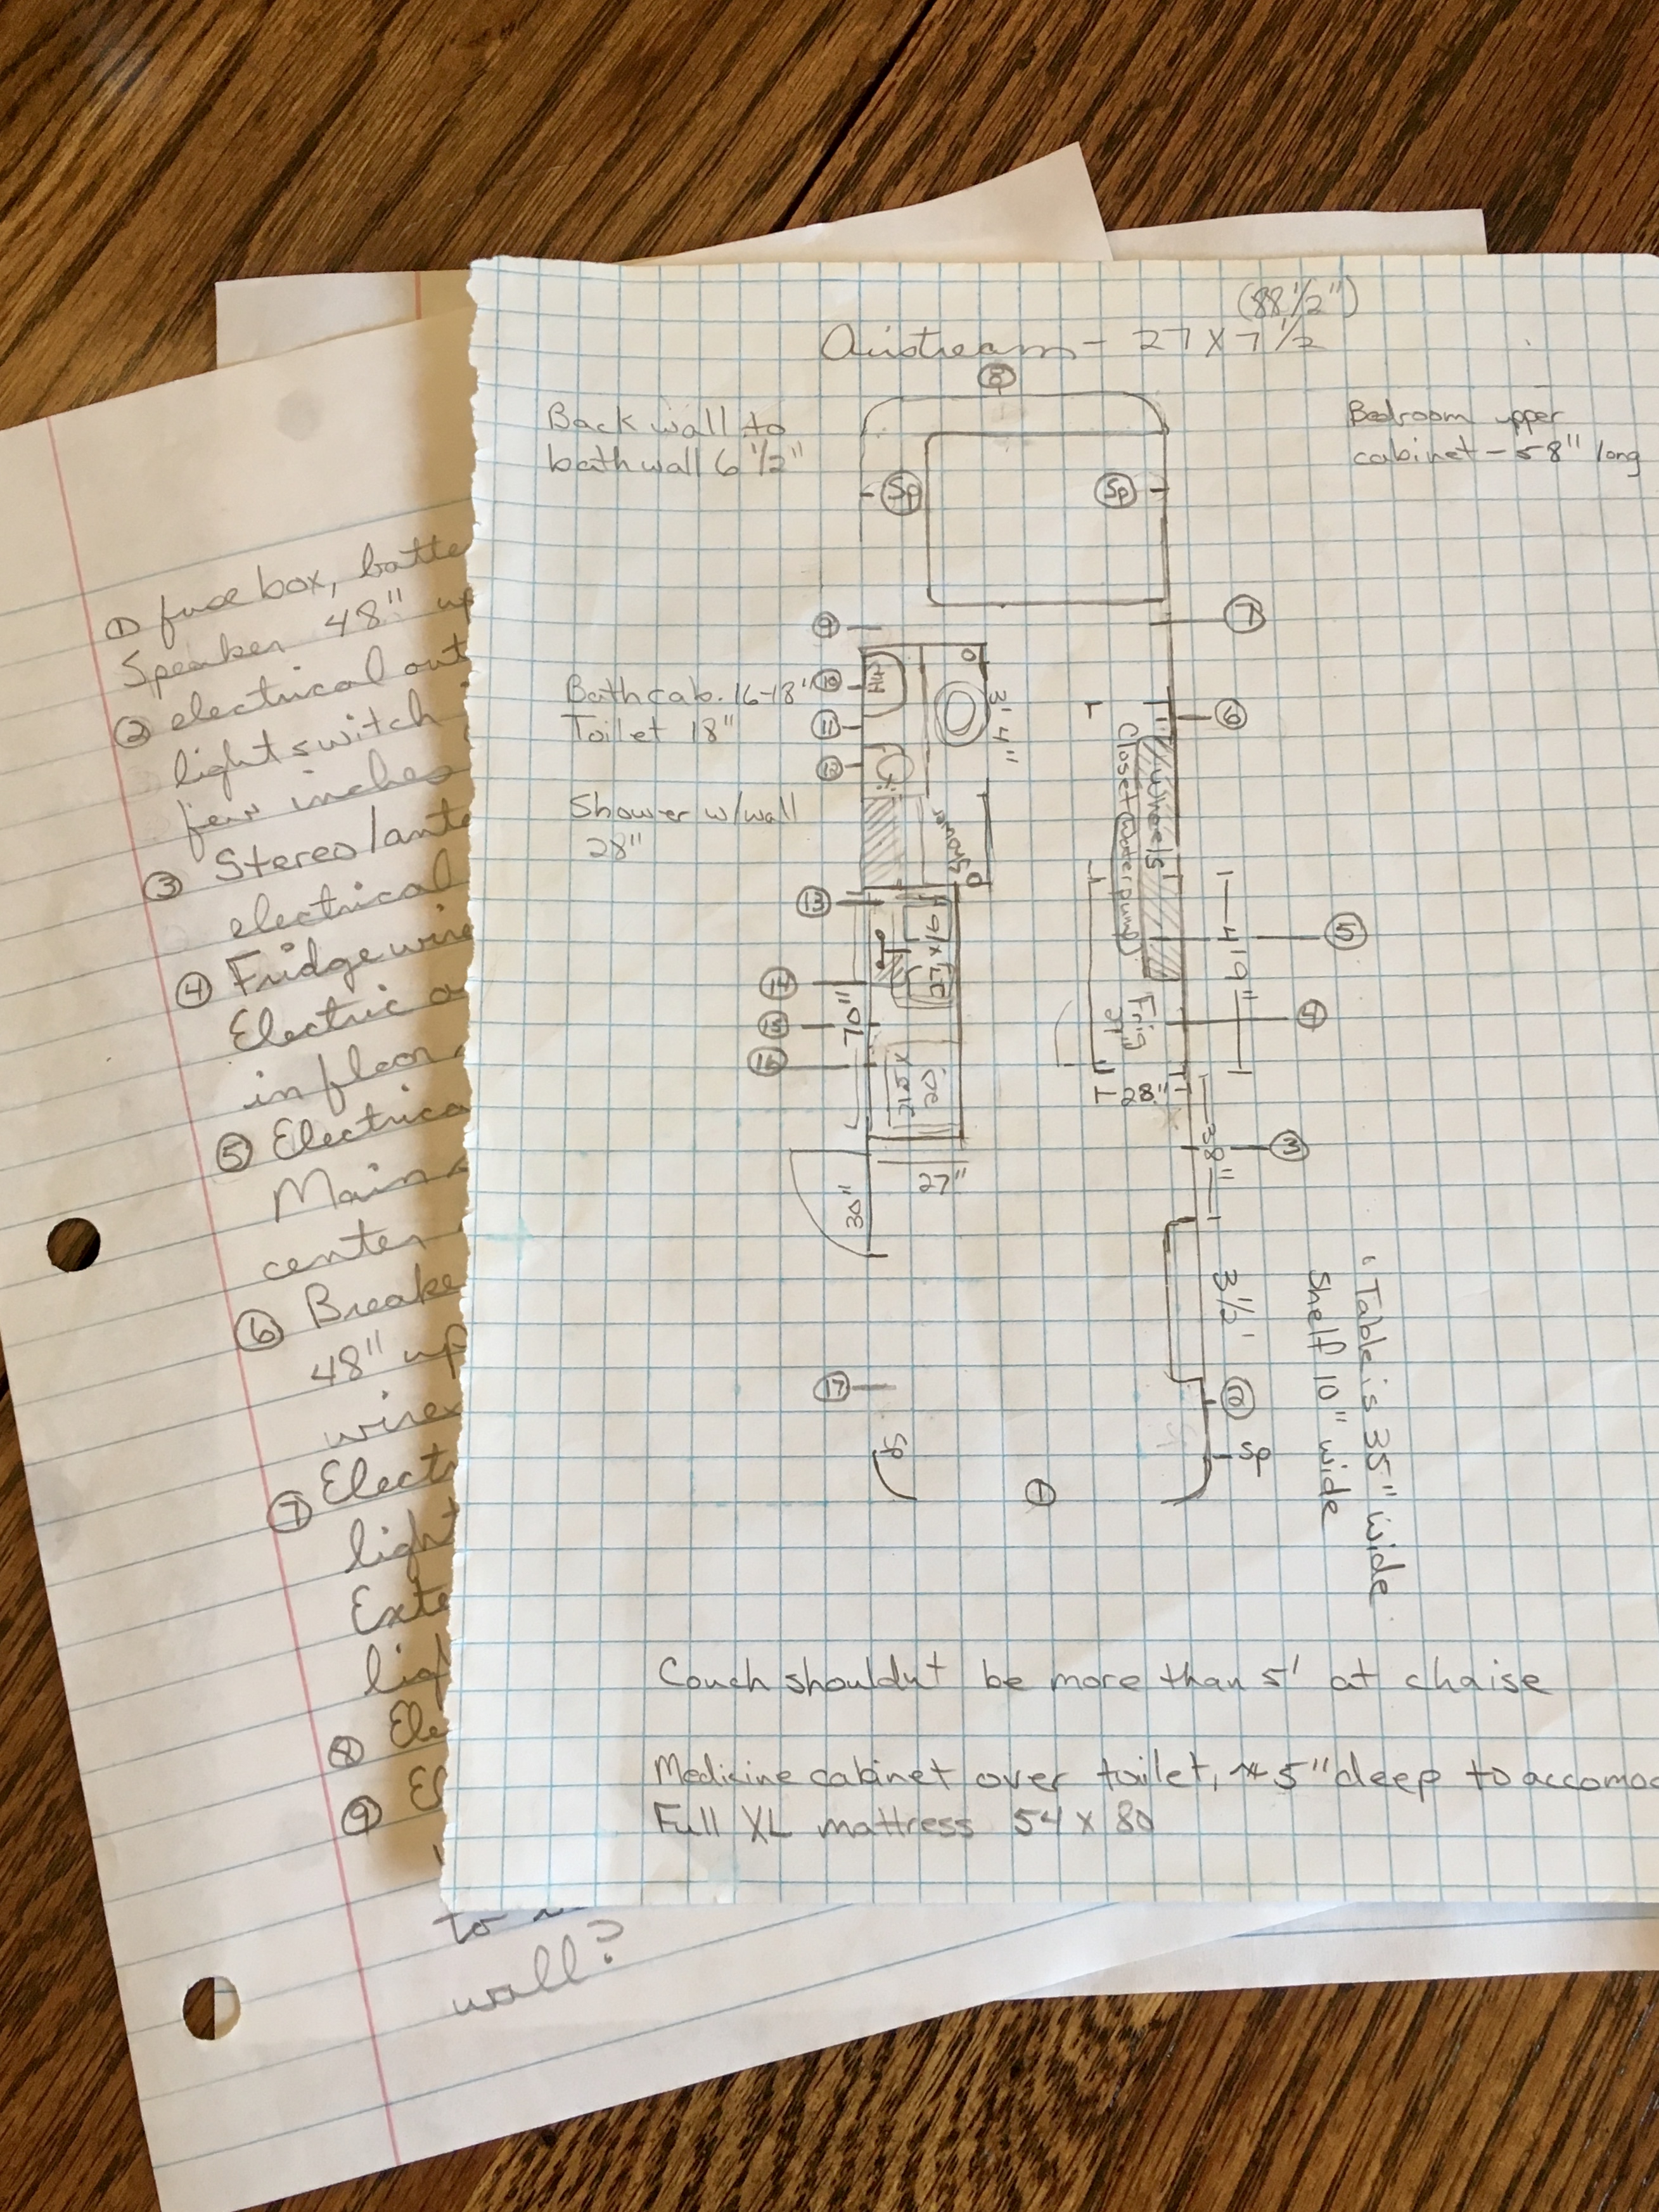 (88 1/2")
Airstream - 27 X 7 1/2
8
Back wall to
bathwall 6 1/2"
Bedroom upper
cabinet - 58" long
Sp
Sp
9
7
Bath cab. 16-18"
Toilet 18"
10
11
12
HW
3' 4"
6
T
Closet
water pump
Wheels
Shower w/wall
28"
Shower
13
14
15
16
70"
4'9"
5
4
Frig
T 28"
38"
3
27"
30"
3 1/2'
Table is 35" wide
Shelf 10" wide
17
Sp
Sp
1
Couch shouldnt be more than 5' at chaise
Medicine cabinet over toilet, 5" deep to accomod
Full XL mattress 54 x 80
1 fuse box, batte
Speaker 48" up
2 electrical out
light switch
few inches
3 Stereo/ante
electrical
4 Fridge wire
Electric o
in floor
5 Electrica
Main
center
6 Breake
48" up
wires
7 Electr
light
Exte
lig
8 Ele
9 El
to
wall?